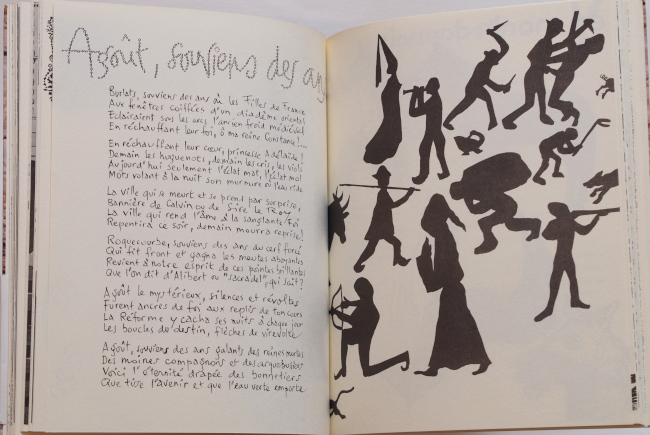 Agoût, souviens des ans
Burlats, souviens des ans où les Filles de France
Aux fenêtres coiffées d'un diadème oriental
Eclairaient sous les arcs l'ancien froid médiéval
En réchauffant leur foi, ô ma reine Constance !...
En réchauffant leur cœur, princesse Adélaïde !
Demain les huguenots, demain les cris, les viols
Aujourd'hui seulement l'éclat mat, l'éclat mol
Mots volant à la nuit son murmure où l'eau ride
La ville qui se meurt et se prend par surprise,
Bannière de Calvin ou de Sire le Roy
La ville qui rend l'âme à la sanglante Foi
Repentira ce soir, demain mourra reprise !
Roquecourbe, souviens des ans au cerf forcé
Qui fit front et gagna les meutes aboyantes
Revient à notre esprit de ces pointes brillantes
Que l'on dit d'Alibert ou "sacradel", qui sait ?
Agoût le mystérieux, silences et révoltes
Furent ancres de foi aux replis de ton cours
La Réforme y cacha ses nuits à chaque jour
Les boucles du destin, flèches de virevolte
Agoût, souviens des ans galants des reines mortes
Des moines compagnons et des arquebusiers
Voici l'éternité drapée des bonnetiers
Que tisse l'avenir et que l'eau verte emporte